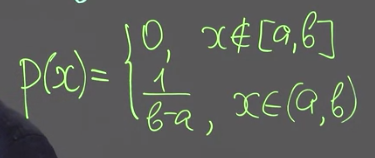 p(x) = { 0, x∉[a,b]
1/(b-a), x∈(a,b)